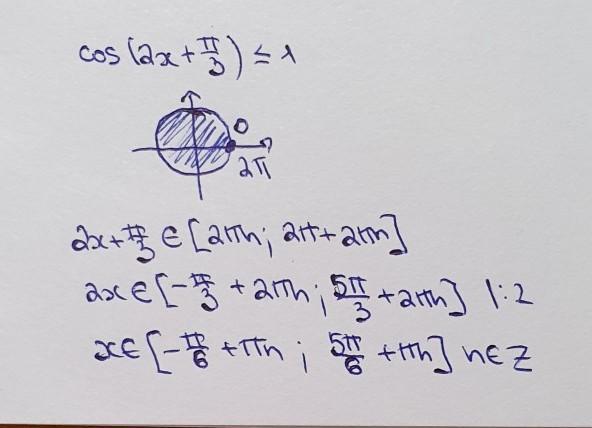 cos(2x + π/3) ≤ 1
0
2π
2x + π/3 ∈ [2πn; 2π + 2πn]
2x ∈ [-π/3 + 2πn; 5π/3 + 2πn] |:2
x ∈ [-π/6 + πn; 5π/6 + πn] n ∈ Z